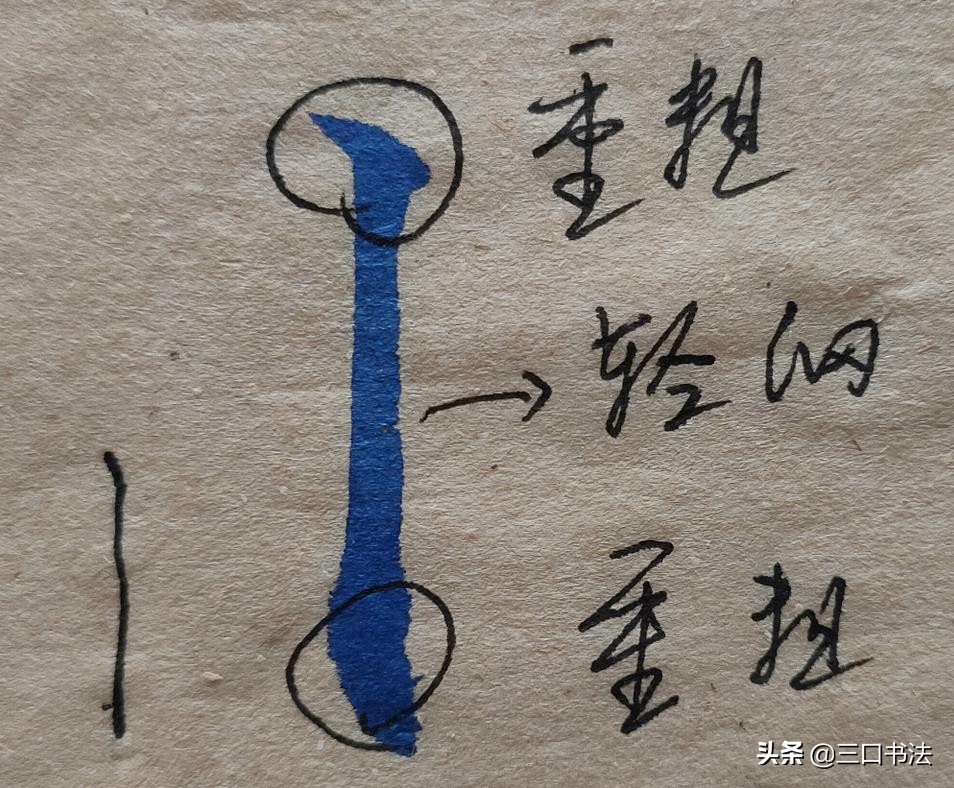 重粗
轻细
重粗
头条 @三口书法